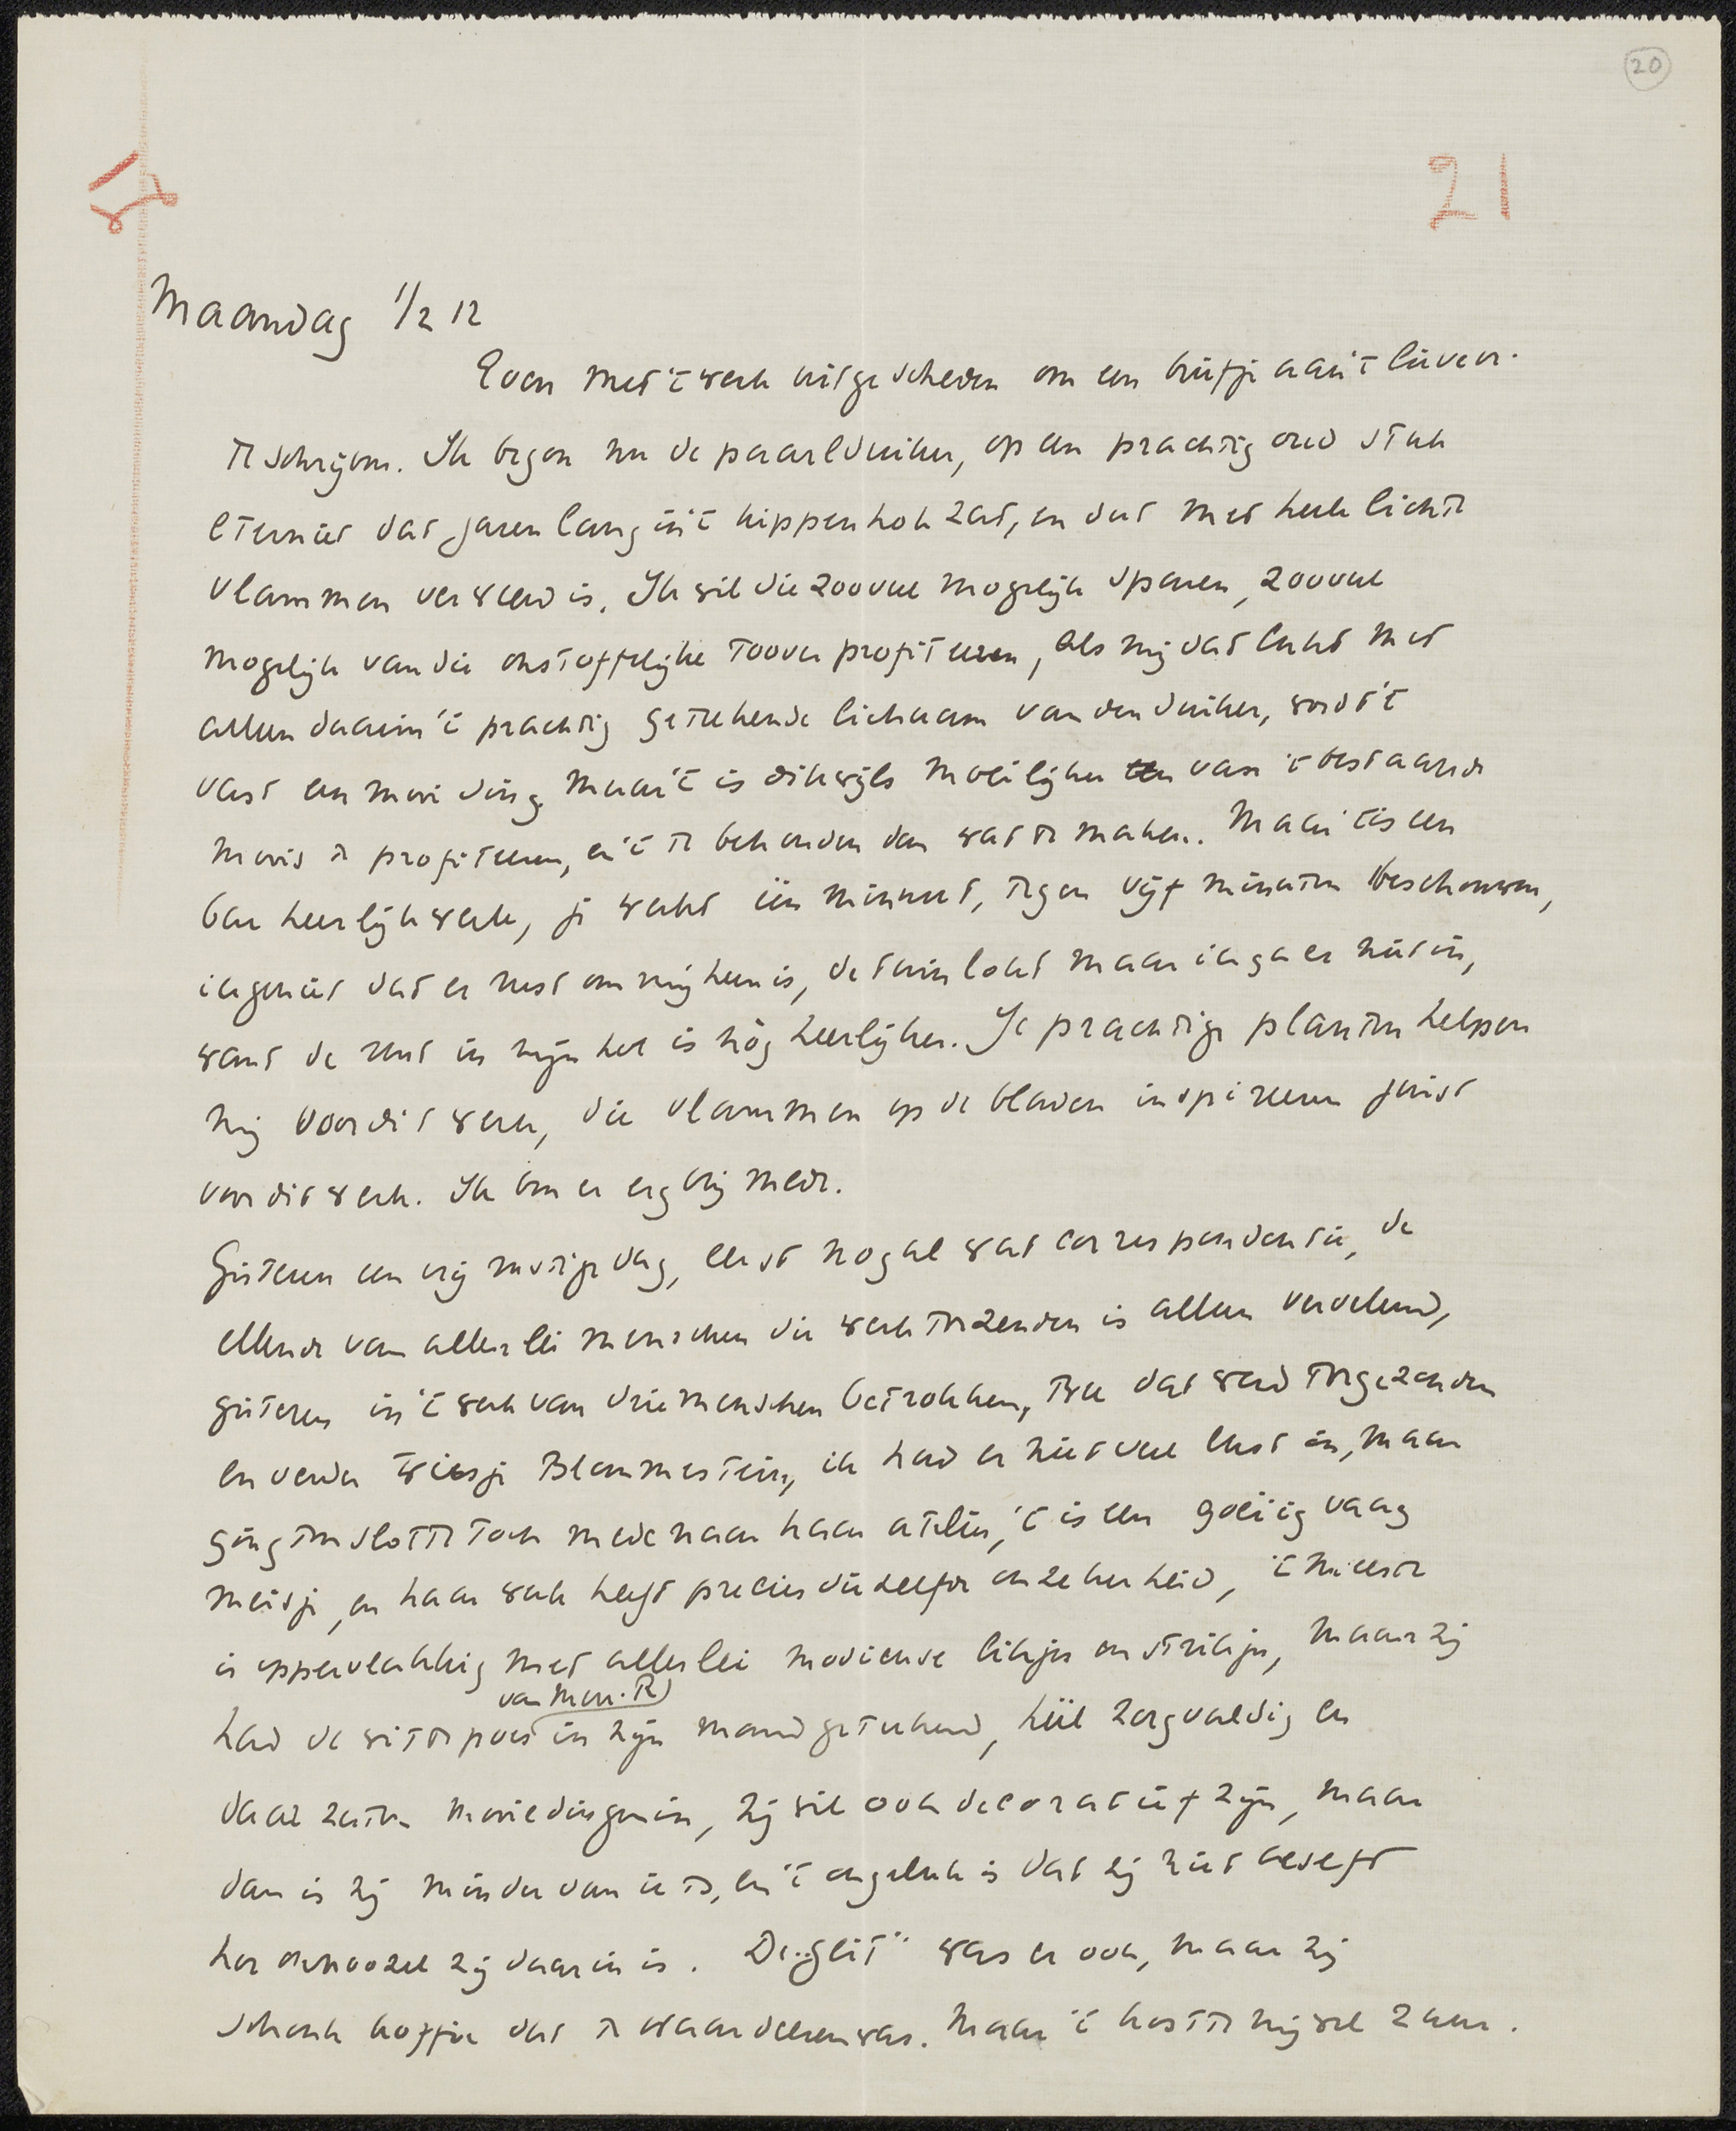 20
21
Maandag 1/2 12
Even met 't werk uitgescheden om een briefje aan 't lieven.
te schrijven. Ik begon nu de paarlduiker, op een prachtig oud stuk
eterniet dat jaren lang in 't kippenhok zat, en dat met heele lichte
vlammen verweerd is. Ik wil die zooveel mogelijk sparen, zooveel
mogelijk van die onstoffelijke toover profiteeren, als mij dat lukt met
alleen daarin 't prachtig geteekende lichaam van den duiker, wordt 't
vast een mooi ding. Maar 't is dikwijls moeilijker van 't bestaande
moois te profiteeren, en 't te behouden dan wat te maken. Maar 't is een
bar heerlijk werk, je werkt één minuut, tegen vijf minuten beschouwen,
ik geniet dat er rust om mij heen is, de tuin lokt maar ik ga er niet in,
want de rust in mijn hol is nóg heerlijker. Je prachtige planten helpen
mij voor dit werk, die vlammen op de bladen inspireeren juist
voor dit werk. Ik ben er erg blij mede.
Gisteren een vrij rustige dag, eerst nogal wat correspondentie, de
ellende van allerlei menschen die werk toezenden is alleen vervelend,
gisteren in 't werk van drie menschen betrokken, twee dat werd toegezonden
en verder Wiesje Blommestein, ik had er niet veel lust in, maar
ging tenslotte toch mede naar haar atelier, 't is een goeiig vaag
meisje, en haar werk heeft precies diezelfde onzekerheid, 't meeste
is oppervlakkig met allerlei modieuse likjes en streekjes, maar zij
van Mevr. R
had de witte poes in zijn mand geteekend, héél zorgvuldig en
daar zaten mooie dingen in, zij wil ook decoratief zijn, maar
dan is zij minder dan iets, en 't ongeluk is dat zij niet beseft
hoe onnoozel zij daarin is. De „geit" was er ook, maar zij
schonk koffie dat te waardeeren was. Maar 't kostte mij wel 2 uur.